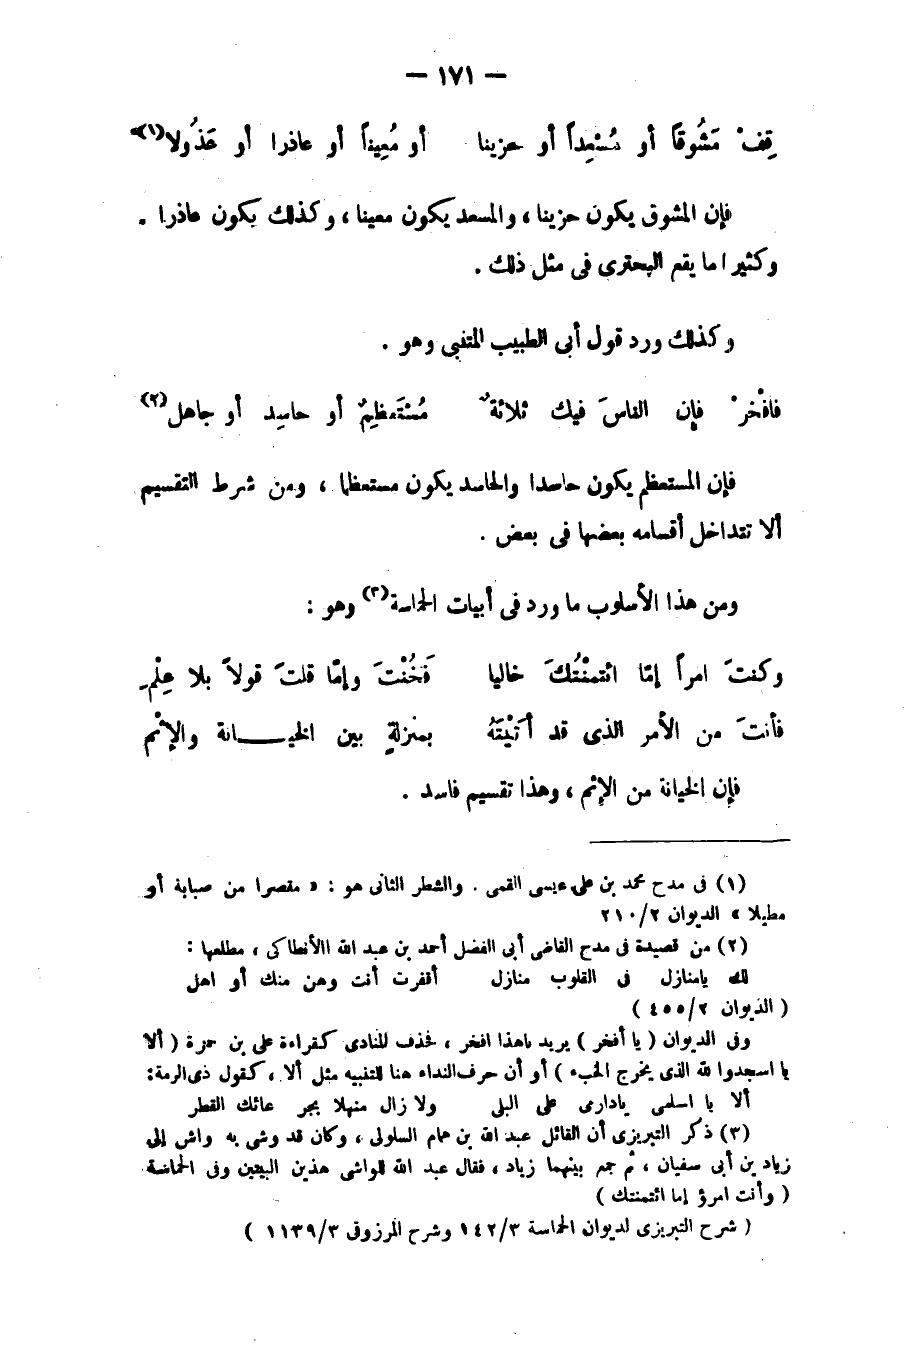 — ١٧١ —
قِفْ مَشُوقًا أو مُسْعِداً أو حزينا أو مُعِيناً أو عاذرا أو عَذُولا(١)
فإن المشوق يكون حزينا ، والمسعد يكون معينا ، وكذلك يكون عاذرا .
وكثيرا ما يقع البحترى فى مثل ذلك .
وكذلك ورد قول أبى الطيب المتنبى وهو .
فافْخرْ فإن الناسَ فيك ثلاثةٌ مُسْتَعظِمٌ أو حاسِد أو جاهل(٢)
فإن المستعظم يكون حاسدا والحاسد يكون مستعظما ، ومن شرط التقسيم
ألا تتداخل أقسامه بعضها فى بعض .
ومن هذا الأسلوب ما ورد فى أبيات الحماسة(٣) وهو :
وكنتَ امرأً إمّا ائتمنْتُكَ خاليا فَخُنْتَ وإمّا قلتَ قولاً بلا عِلْمِ
فأنتَ من الأمر الذى قد أتَيْتَهُ بمنزلةٍ بين الخيـــانة والإثْم
فإن الخيانة من الإثم ، وهذا تقسيم فاسد .
(١) فى مدح محمد بن على عيسى القمى . والشطر الثانى هو : « مقصرا من صبابة أو
مطيلا » الديوان ٢/٢١٠
(٢) من قصيدة فى مدح القاضى أبى الفضل أحمد بن عبد الله االأنطاكى ، مطلعها :
لك يامنازل فى القلوب منازل أقفرت أنت وهن منك أو اهل
( الديوان ٢/٤٥٥ )
وفى الديوان ( يا أفخر ) يريد ياهذا افخر ، فحذف المنادى كقراءة على بن حمزة ( ألا
يا اسجدوا لله الذى يخرج الخبء ) أو أن حرف النداء هنا للتنبيه مثل ألا ، كقول ذى الرمة:
ألا يا اسلمى يادارى على البلى ولا زال منهلا بجر عائك القطر
(٣) ذكر التبريزى أن القائل عبد الله بن همام السلولى ، وكان قد وشى به واش إلى
زياد بن أبى سفيان ، ثم جمع بينهما زياد ، فقال عبد الله للواشى هذين البيتين وفى الحماسة
( وأنت امرؤ إما ائتمنتك )
( شرح التبريزى لديوان الحماسة ٣/١٤٢ وشرح المرزوقى ٣/١١٣٩ )